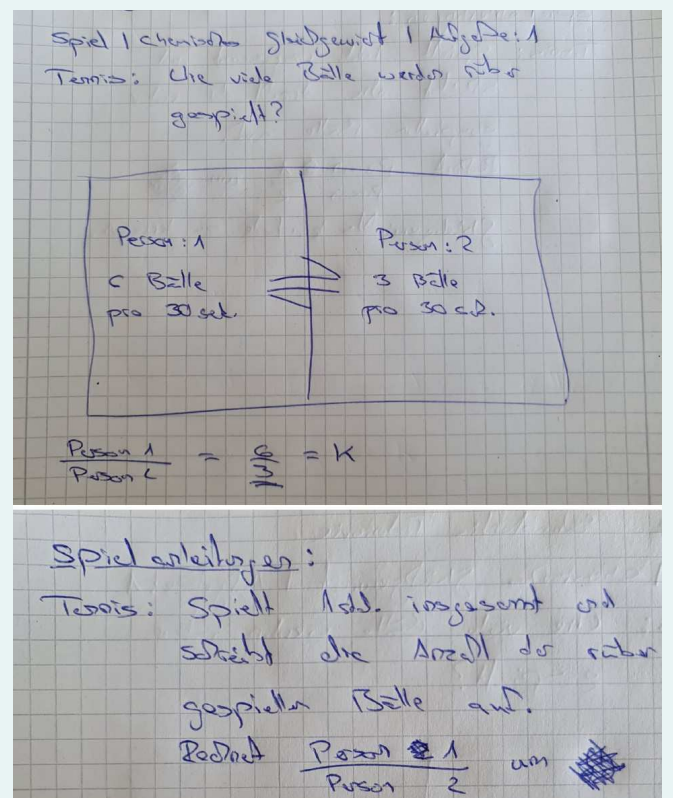 Spiel | chemisches gleichgewicht | Aufgabe: 1
Tennis: Wie viele Bälle werden rüber
gespielt?
Person: 1
6 Bälle
pro 30 sek.
Person: 2
3 Bälle
pro 30 sek.
Person 1 / Person 2 = 6/3 = K
Spielanleitungen:
Tennis: Spielt 1std. insgesamt und
schreibt die Anzahl der rüber
gespielten Bälle auf.
Rechnet Person 1 / Person 2 um